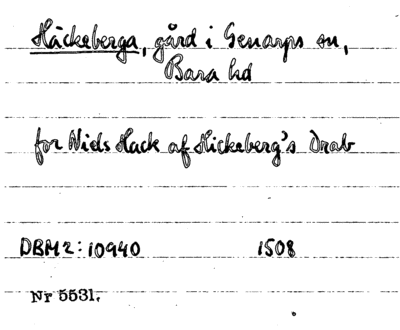 Häckeberga, gård i Genarps sn,
Bara hd
for Niels Hack af Hickeberg's Drab
DBM2:10940 1508
Nr 5531.